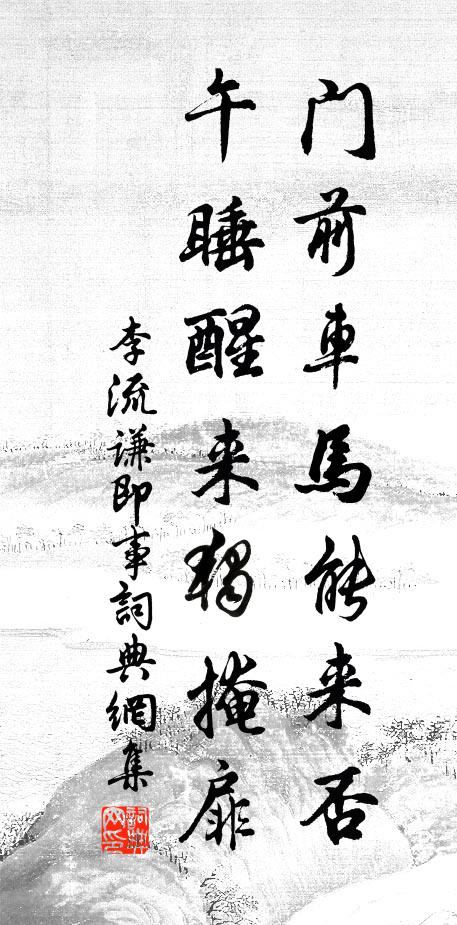 門前車馬能来否
午睡醒来獨掩扉
李流謙即事詞典網集